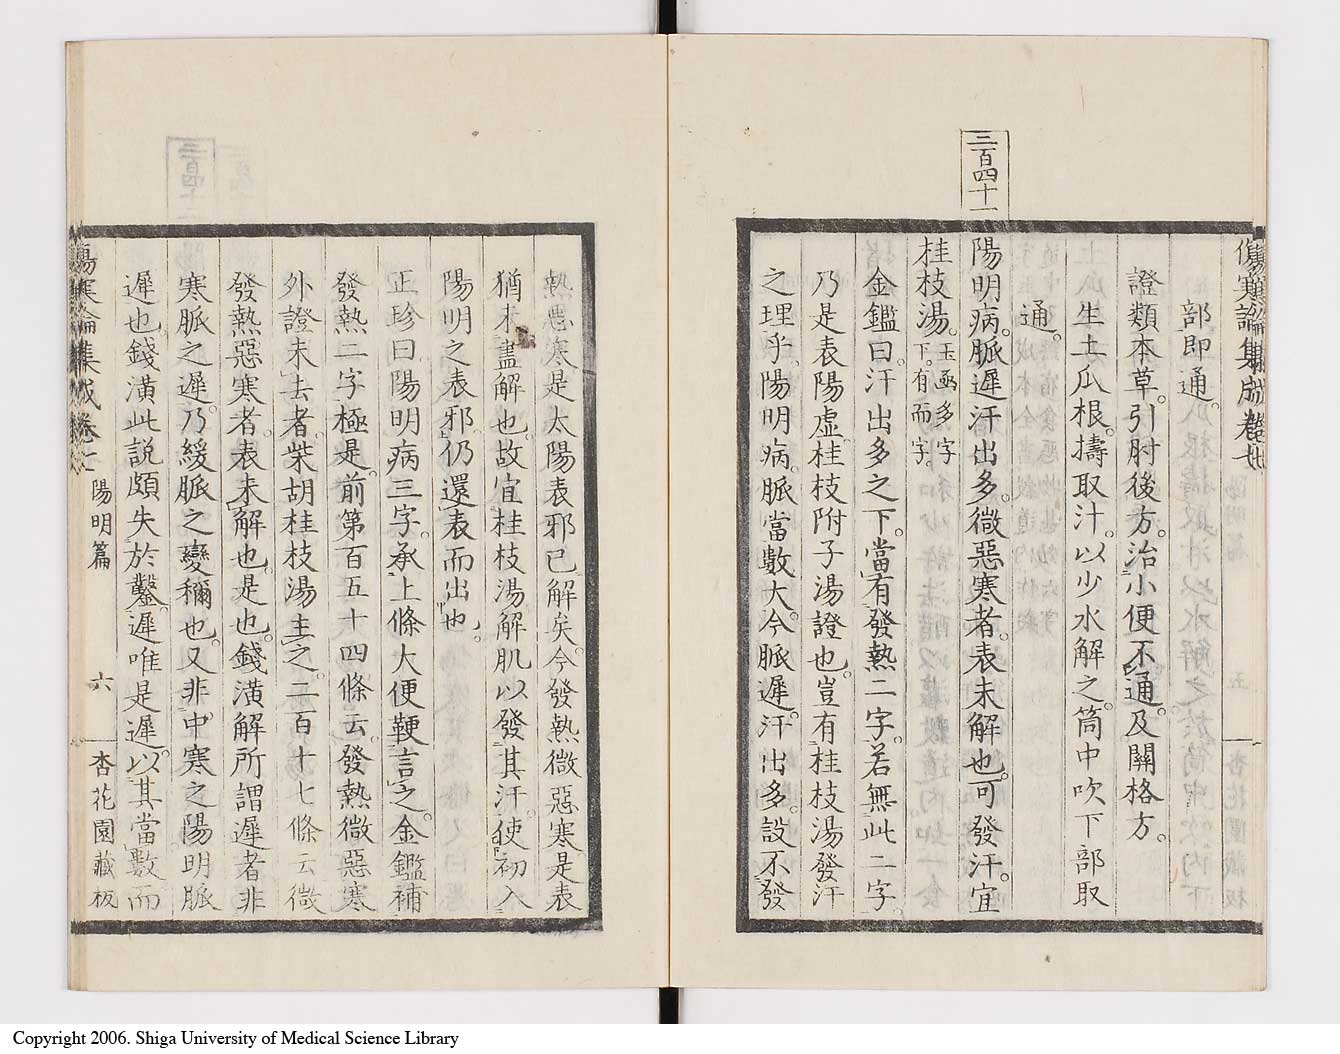 三百四十一
部即通。
證類本草。引肘後方。治小便不通及關格方。
生土瓜根。擣取汁。以少水解之。筒中吹下部取
通。
陽明病。脈遲汗出多。微惡寒者。表未解也。可發汗。宜
桂枝湯。玉函多字下。有而字。
金鑑曰。汗出多之下。當有發熱二字。若無此二字。
乃是表陽虛。桂枝附子湯證也。豈有桂枝湯發汗
之理乎。陽明病。脈當數大。今脈遲。汗出多。設不發
熱惡寒。是太陽表邪已解矣。今發熱微惡寒。是表
猶未盡解也。故宜桂枝湯解肌以發其汗。使初入
陽明之表邪。仍還表而出也。
正珍曰。陽明病三字。承上條大便鞕言之。金鑑補
發熱二字極是。前第百五十四條云。發熱微惡寒
外證未去者。柴胡桂枝湯主之。二百十七條云。微
發熱惡寒者。表未解也。是也。錢潢解所謂遲者。非
寒脈之遲。乃緩脈之變稱也。又非中寒之陽明脈
遲也。錢潢此說頗失於鑿。遲唯是遲。以其當數而
傷寒論集成卷七 陽明篇 六 杏花園藏板
Copyright 2006. Shiga University of Medical Science Library